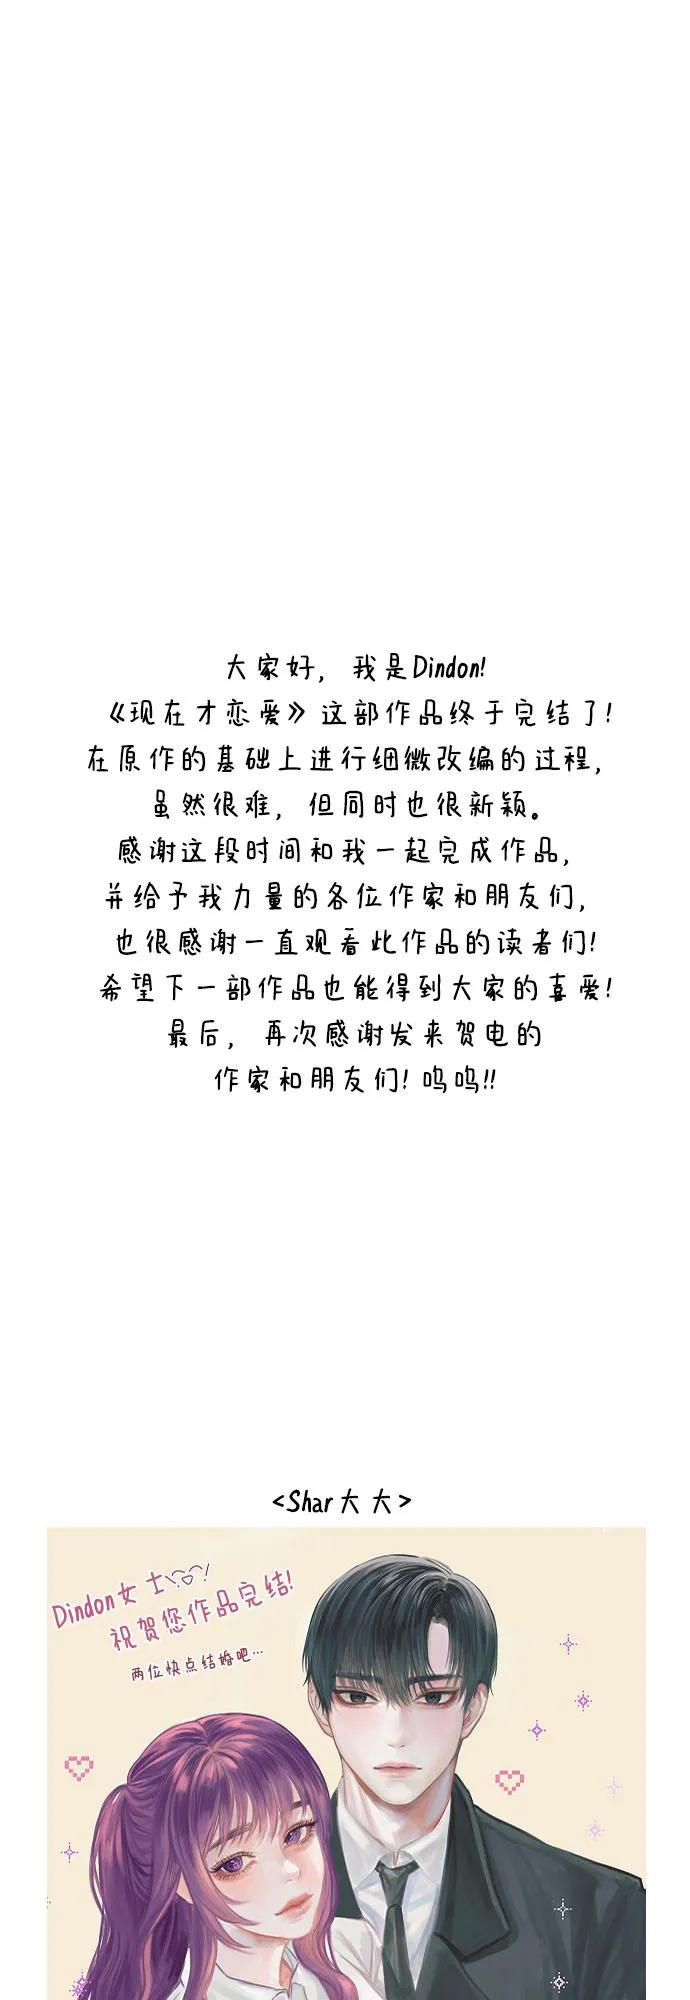 大家好, 我是Dindon!
《现在才恋爱》这部作品终于完结了!
在原作的基础上进行细微改编的过程,
虽然很难, 但同时也很新颖。
感谢这段时间和我一起完成作品,
并给予我力量的各位作家和朋友们,
也很感谢一直观看此作品的读者们!
希望下一部作品也能得到大家的喜爱!
最后, 再次感谢发来贺电的
作家和朋友们! 呜呜!!
<Shar大大>
Dindon女士
祝贺您作品完结!
两位快点结婚吧...